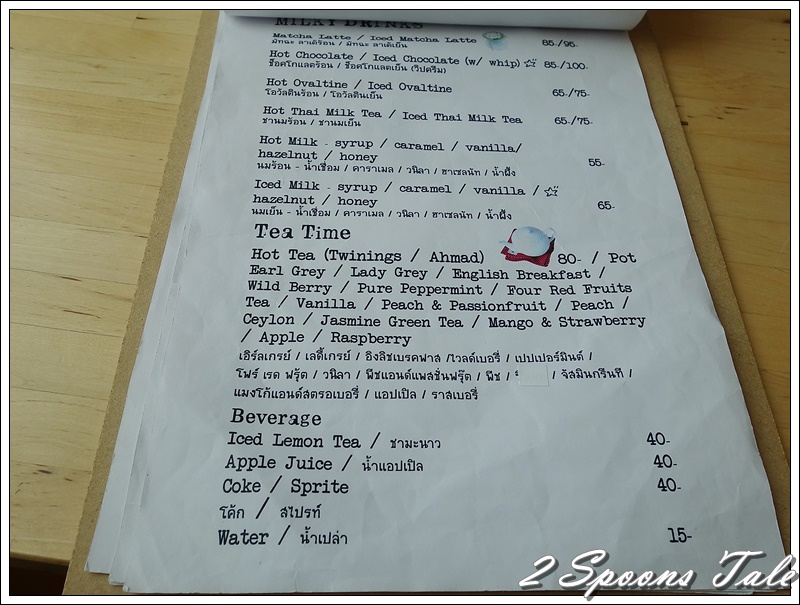 MILKY DRINKS
Matcha Latte / Iced Matcha Latte 85-/95-
มัทฉะ ลาเต้ร้อน / มัทฉะ ลาเต้เย็น
Hot Chocolate / Iced Chocolate (w/ whip) 85-/100-
ช็อคโกแลตร้อน / ช็อคโกแลตเย็น (วิปครีม)
Hot Ovaltine / Iced Ovaltine 65-/75-
โอวัลตินร้อน / โอวัลตินเย็น
Hot Thai Milk Tea / Iced Thai Milk Tea 65-/75-
ชานมร้อน / ชานมเย็น
Hot Milk - syrup / caramel / vanilla/
hazelnut / honey 55-
นมร้อน - น้ำเชื่อม / คาราเมล / วนิลา / ฮาเซลนัท / น้ำผึ้ง
Iced Milk - syrup / caramel / vanilla /
hazelnut / honey 65-
นมเย็น - น้ำเชื่อม / คาราเมล / วนิลา / ฮาเซลนัท / น้ำผึ้ง
Tea Time
Hot Tea (Twinings / Ahmad) 80- / Pot
Earl Grey / Lady Grey / English Breakfast /
Wild Berry / Pure Peppermint / Four Red Fruits
Tea / Vanilla / Peach & Passionfruit / Peach /
Ceylon / Jasmine Green Tea / Mango & Strawberry
/ Apple / Raspberry
เอิร์ลเกรย์ / เลดี้เกรย์ / อิงลิชเบรคฟาส /ไวลด์เบอรี่ / เปปเปอร์มินต์ /
โฟร์ เรด ฟรุ๊ต / วนิลา / พีชแอนด์แพสชั่นฟรุ๊ต / พีช / / จัสมินกรีนที /
แมงโก้แอนด์สตรอเบอรี่ / แอปเปิล / ราสเบอรี่
Beverage
Iced Lemon Tea / ชามะนาว 40-
Apple Juice / น้ำแอปเปิล 40-
Coke / Sprite 40-
โค้ก / สไปรท์
Water / น้ำเปล่า 15-
2 Spoons Tale